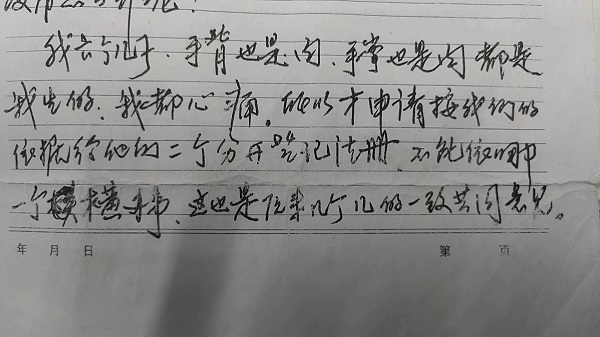 我六个儿子、手背也是肉、手掌也是肉都是
我生的、我都心痛。所以才申请按线约的
依据给他们二个分开登记注册、不能依
一个横、这也是后来几个儿的一致共同意见。
年 月 日 第 页